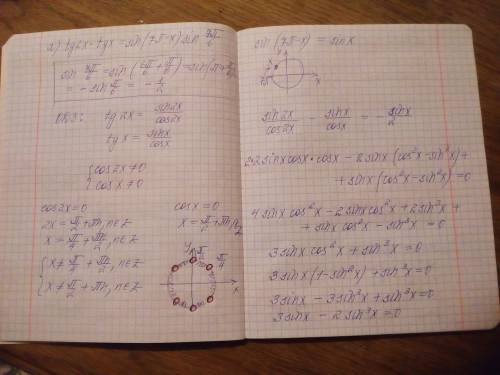 a) tg2x - tgx = sin(7π-x) sin 7π/6
sin 7π/6 = sin(6π/6 + π/6) = sin(π + π/6) =
= - sin π/6 = - 1/2
ОДЗ: tg 2x = sin2x/cos2x
tg x = sinx/cosx
{ cos2x ≠ 0
cosx ≠ 0
cos2x = 0
2x = π/2 + πn, n∈Z
x = π/4 + πn/2, n∈Z
{ x ≠ π/4 + πn/2, n∈Z
x ≠ π/2 + πn, n∈Z
cosx = 0
x = π/2 + πn, n∈Z
y
π/2
π/4
x
sin(7π-x) = sinx
y
7π
x
sin2x/cos2x - sinx/cosx = - sinx/2
2·2sinxcosx·cosx - 2sinx(cos²x - sin²x) +
+ sinx(cos²x - sin²x) = 0
4sinxcos²x - 2sinxcos²x + 2sin³x +
+ sinxcos²x - sin³x = 0
3sinxcos²x + sin³x = 0
3sinx(1 - sin²x) + sin³x = 0
3sinx - 3sin³x + sin³x = 0
3sinx - 2sin³x = 0